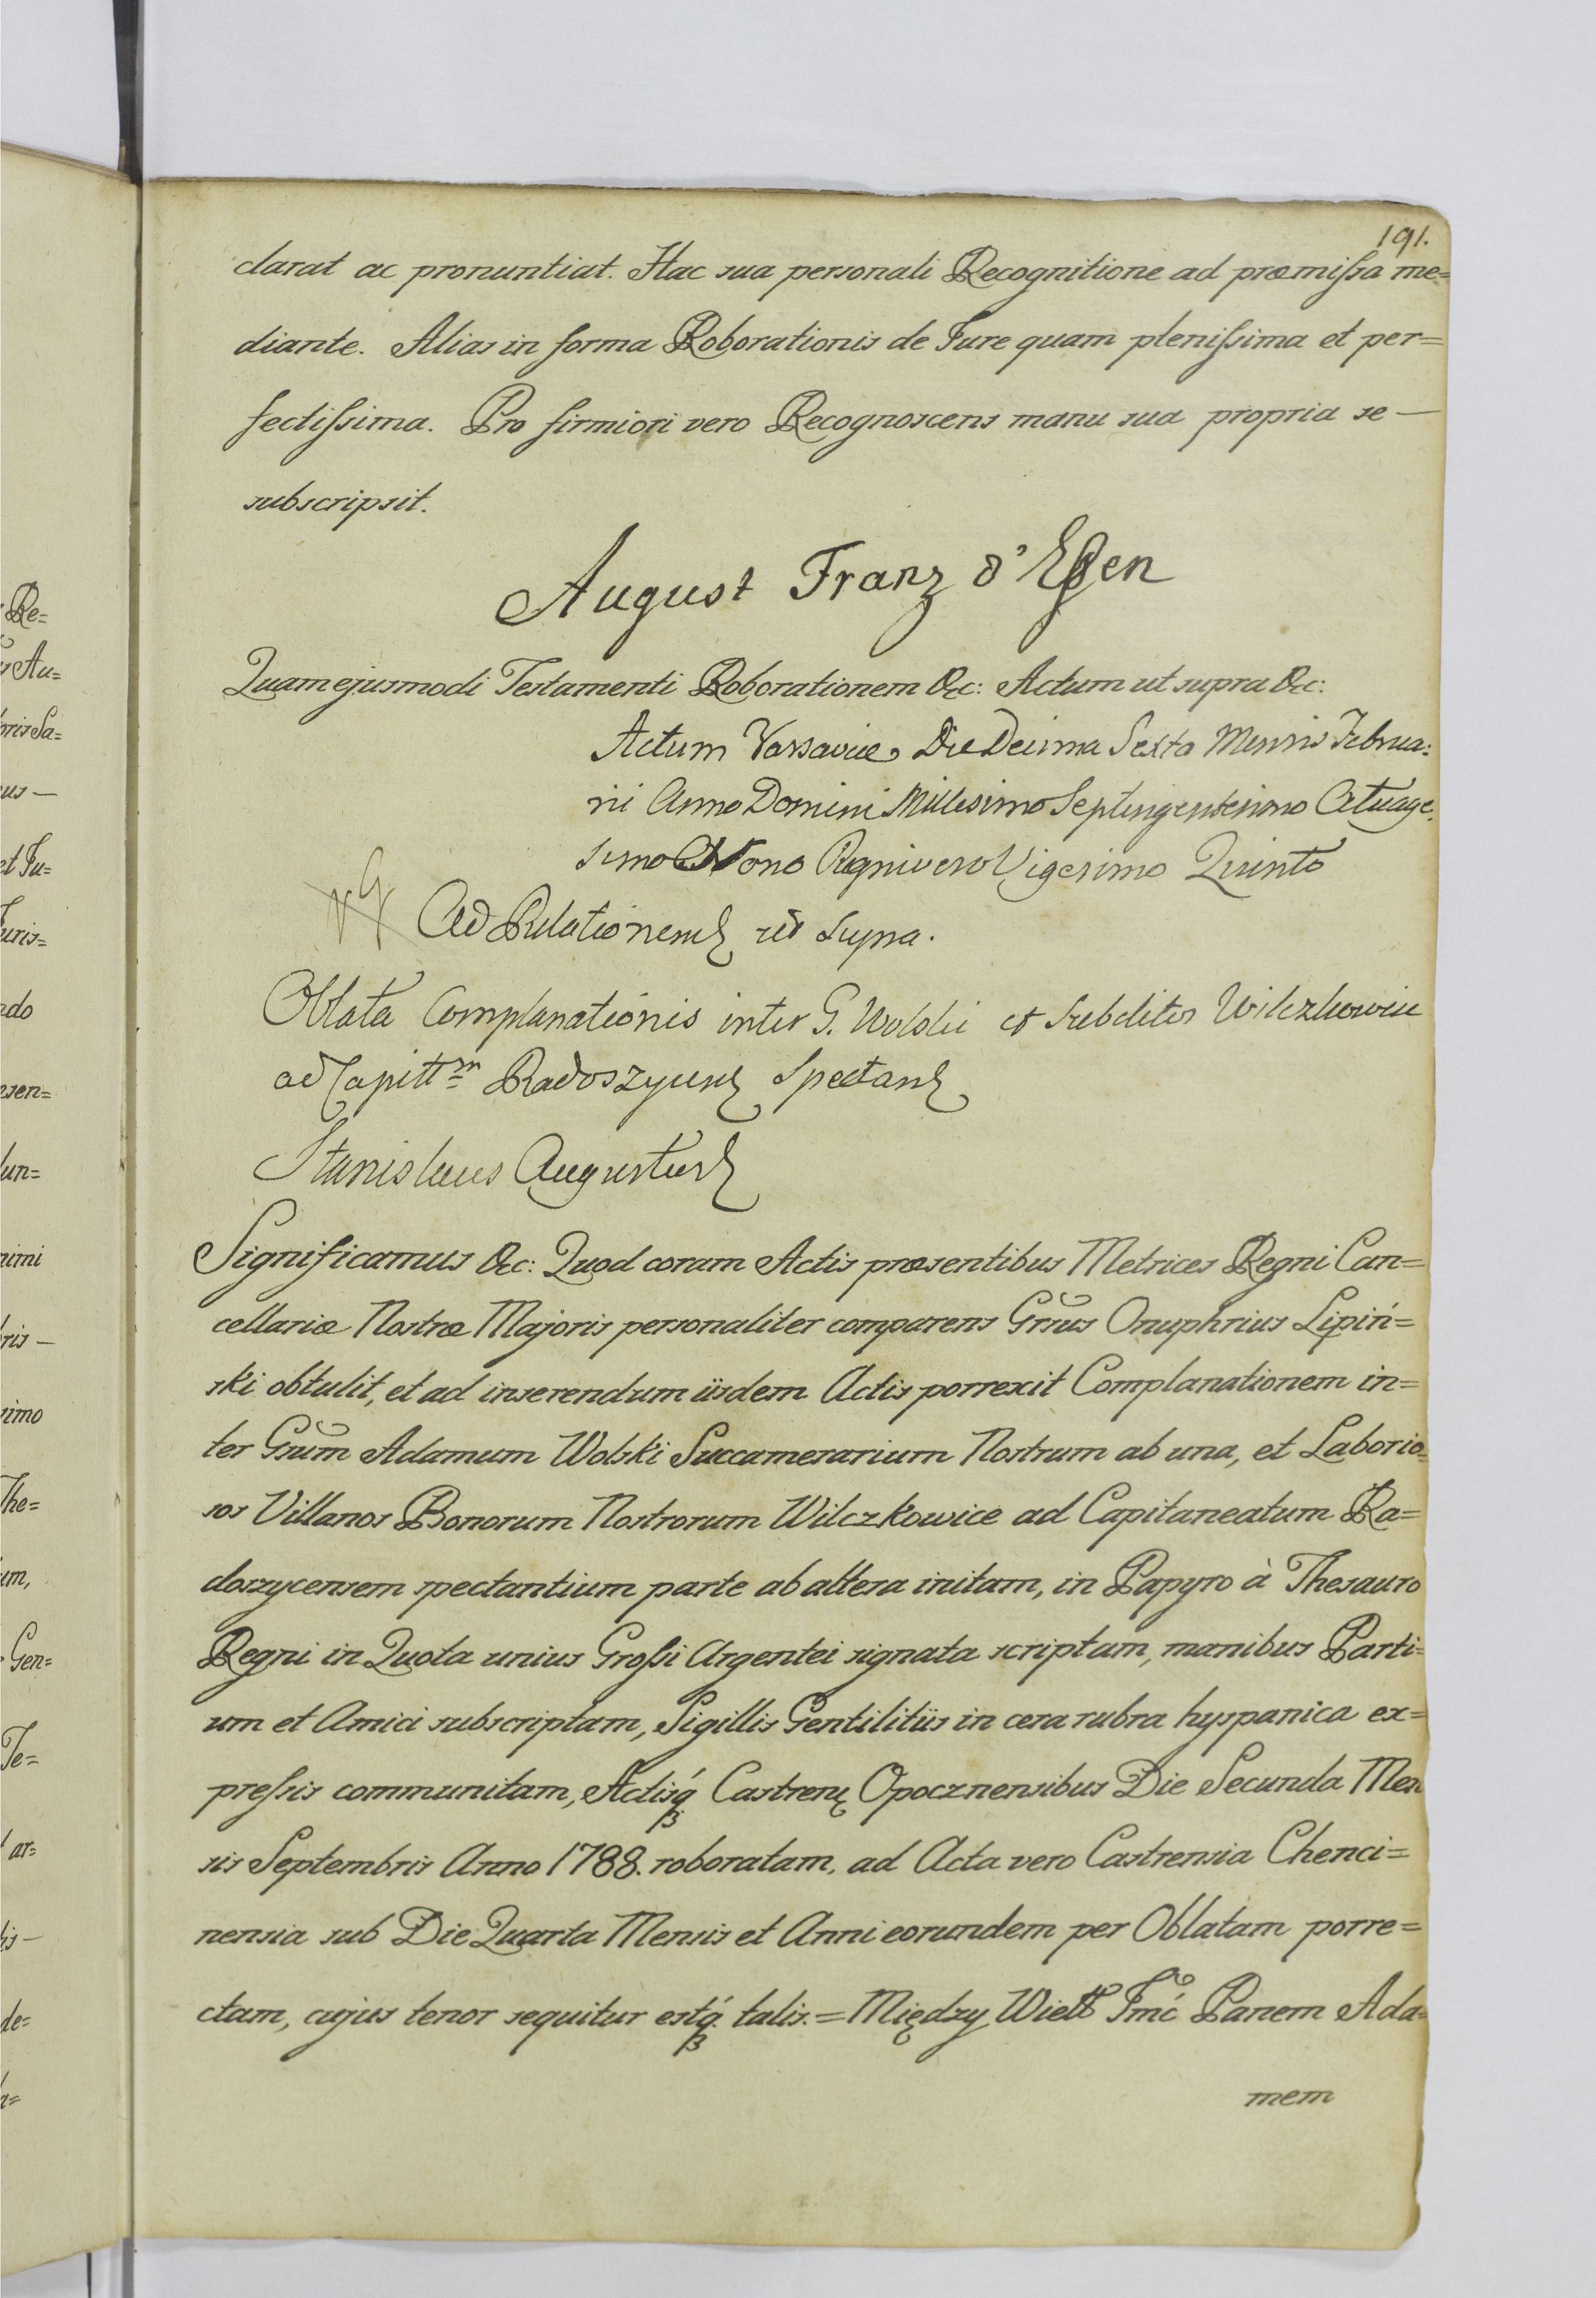 191.
clarat ac pronuntiat. Hac sua personali Recognitione ad præmiſsa me=
diante. Alias in forma Roborationis de Jure quam pleniſsima et per=
fectiſsima. Pro firmiori vero Recognoscens manu sua propria se —
subscripsit.
August Franz d'Eßen
Quam ejusmodi Testamenti Roborationem &c: Actum ut supra &c:
Actum Varsaviæ Die Decima Sexta Mensis Februa:
rii Anno Domini Millesimo Septingentesimo Octuage.
simo Nono Regni vero Vigesimo Quinto
Ad Relationem ut supra.
Oblata Complanationis inter G. Wolski et subditos Wilczkowice
ad Capittm Radoszycen Spectan
Stanislaus Augustus
Significamus &c: Quod coram Actis præsentibus Metrices Regni Can=
cellariæ Nostræ Majoris personaliter comparens Grsus Onuphrius Lipiń=
ski obtulit, et ad inserendum iisdem Actis porrexit Complanationem in=
ter Grsum Adamum Wolski Succamerarium Nostrum ab una, et Laborio=
sos Villanos Bonorum Nostrorum Wilczkowice ad Capitaneatum Ra=
doszycensem spectantium parte ab altera initam, in Papyro à Thesauro
Regni in Quota unius Groſsi Argentei signata scriptam, manibus Parti=
um et Amici subscriptam, Sigillis Gentilitiis in cera rubra hyspanica ex=
preſsis communitam, Actisq́ Castren Opocznensibus Die Secunda Men
sis Septembris Anno 1788. roboratam, ad Acta vero Castrensia Chenci=
nensia sub Die Quarta Mensis et Anni eorundem per Oblatam porre=
ctam, cujus tenor sequitur estq́. talis. = Między Wielt Jmć Panem Ada=
mem
Re=
Au=
oris Sa=
us —
et Ju=
uris=
ndo
nsen=
un=
nimi
ris —
simo
The=
um,
Gen=
Te=
ar=
is —
de=